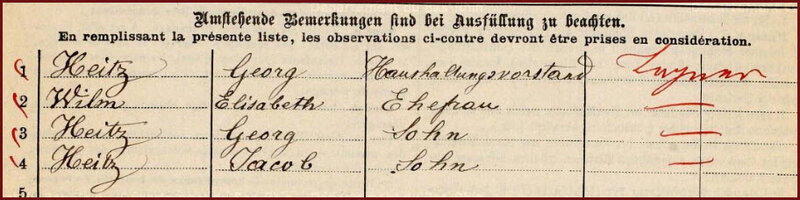 Umstehende Bemerkungen sind bei Ausfüllung zu beachten.
En remplissant la présente liste, les observations ci-contre devront être prises en considération.
1 Heitz Georg Haushaltungsvorstand
2 Wilm Elisabeth Ehefrau
3 Heitz Georg Sohn
4 Heitz Jacob Sohn
5